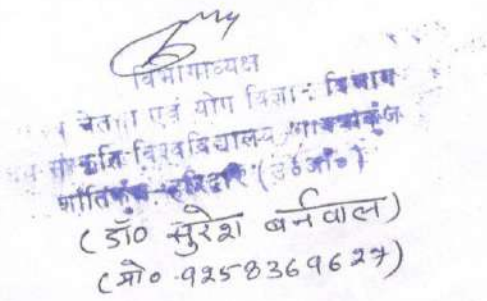 विभागाध्यक्ष
चेतना एवं योग विज्ञान विभाग
संस्कृति विश्वविद्यालय गायत्रीकुंज
शांतिकुंज-हरिद्वार (उ०अं०)
(डॉ० सुरेश बर्नवाल)
(मो० 9258369627)